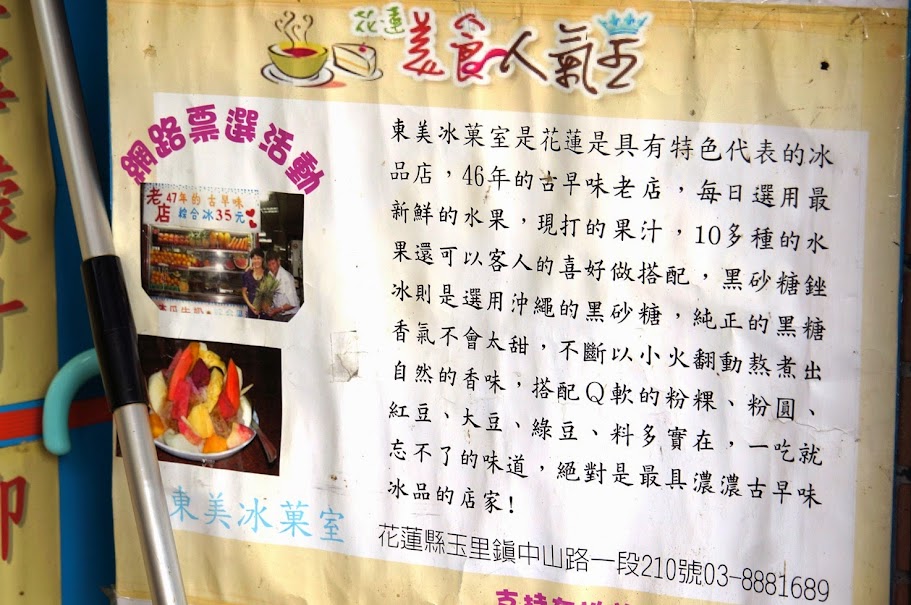 花蓮 美食人氣王
網路票選活動
老店 47年的古早味
綜合冰35元
東美冰菓室是花蓮是具有特色代表的冰
品店，46年的古早味老店，每日選用最
新鮮的水果，現打的果汁，10多種的水
果還可以客人的喜好做搭配，黑砂糖銼
冰則是選用沖繩的黑砂糖，純正的黑糖
香氣不會太甜，不斷以小火翻動熬煮出
自然的香味，搭配Q軟的粉粿、粉圓、
紅豆、大豆、綠豆、料多實在，一吃就
忘不了的味道，絕對是最具濃濃古早味
冰品的店家！
東美冰菓室
花蓮縣玉里鎮中山路一段210號03-8881689